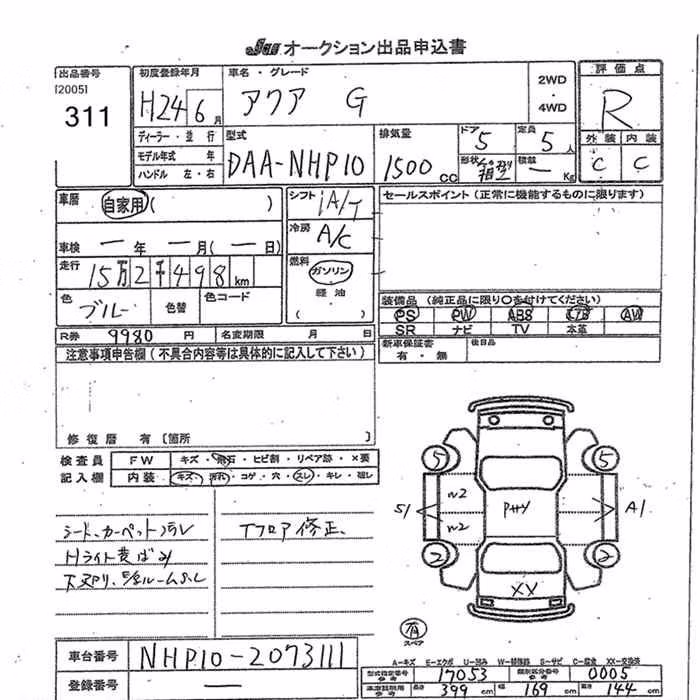 JAA オークション出品申込書
出品番号
[2005]
311
初度登録年月
H24 6月
車名・グレード
アクア G
2WD
・
4WD
評価点
R
外装 内装
C C
ディーラー・並行
モデル年式 年
ハンドル 左・右
型式
DAA-NHP10
排気量
1500 CC
ドア 5
定員 5人
形状
積載 ー Kg
車歴
自家用( )
車検 ー年 ー月(ー日)
走行
15万2千498km
色
ブルー
色替
色コード
シフト
冷房
A/C
燃料
ガソリン
・
軽油
( )
セールスポイント(正常に機能するものに限ります)
装備品(純正品に限り〇を付けてください)
PS PW ABS AW
SR ナビ TV 本革
R券 9980円
名変期限 月 日
新車保証書
有・無
後日品
注意事項申告欄(不具合内容等は具体的に記入して下さい)
修復歴 有〔箇所 〕
検査員
記入欄
FW キズ・飛石・ヒビ割・リペア跡・×要
内装 キズ・汚れ・コゲ・穴・スレ・キレ・破レ
シート、カーペット汚レ
Hライト黄ばみ
Tフロア修正、
5 5
S1 A1
2 2
XX
スペア
車台番号 NHP10-2073111
登録番号 ー
A-キズ E-エクボ U-凹み W-補修跡 S-サビ C-腐食 XX-交換済
型式指定番号 17053
類別区分番号 0005
長さ 399 cm 幅 169 cm 高さ 144 cm